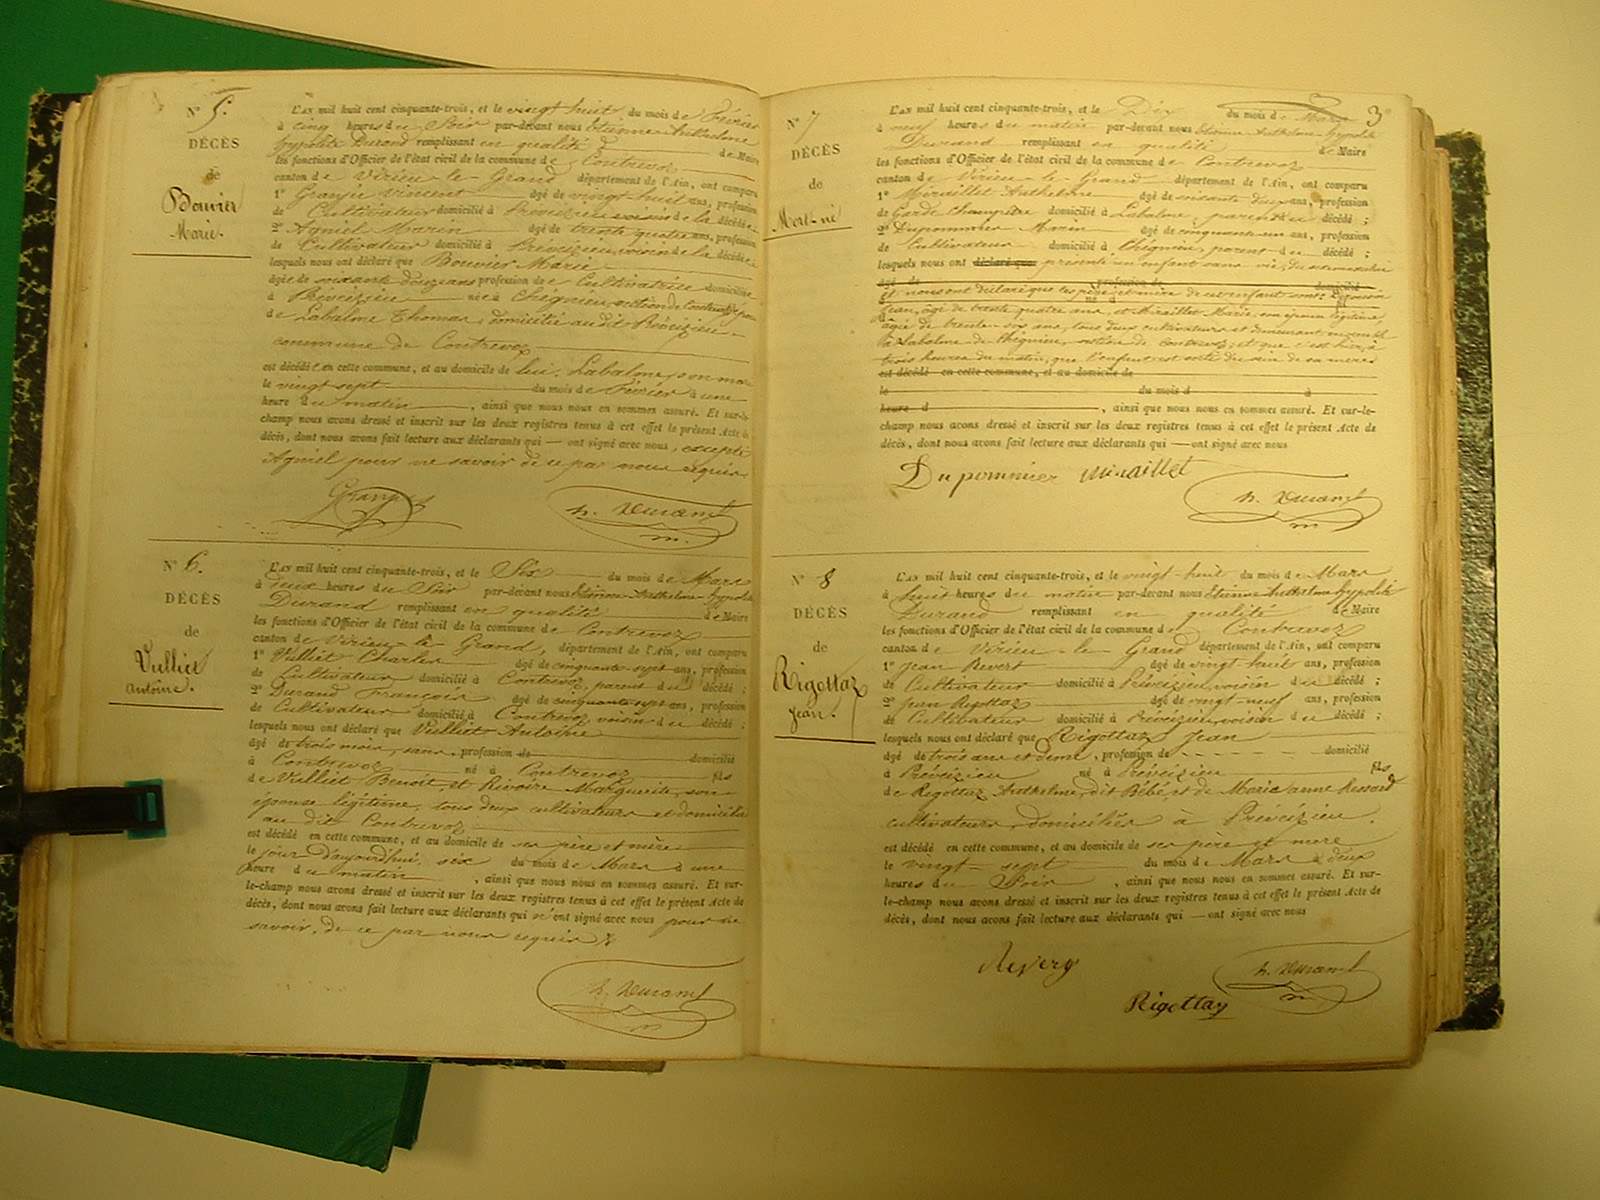 N° 5.
DÉCÈS
de
Bouvier
Marie.
L'AN mil huit cent cinquante-trois, et le vingt huit du mois de Février
à cinq heures du Soir par-devant nous Etienne Anthelme
hypolite Durand remplissant en qualité de Maire
les fonctions d'Officier de l'état civil de la commune de Contrevoz
canton de Virieu-le-Grand département de l'Ain, ont comparu
1° Granjie Vincent âgé de vingt huit ans, profession
de Cultivateur domicilié à Prévézieu voisin de la décédée
2° Agniel Marin âgé de trente quatre ans, profession
de Cultivateur domicilié à Prévézieu, voisin de la décédée
lesquels nous ont déclaré que Bouvier Marie
âgée de soixante douze ans profession de Cultivatrice domiciliée
à Prévézieu née à Cheignieu, section de Contrevoz
de Labalme Thomas, domicilié au dit Prévézieu
commune de Contrevoz
est décédée en cette commune, et au domicile de lui, Labalme, son mari
le vingt sept du mois de Février à une
heure du matin, ainsi que nous nous en sommes assuré. Et sur-le-
champ nous avons dressé et inscrit sur les deux registres tenus à cet effet le présent Acte de
décès, dont nous avons fait lecture aux déclarants qui — ont signé avec nous, excepté
Agniel pour ne savoir de ce par nous requis
h. Durand
N° 6.
DÉCÈS
de
Vulliet
Antoine.
L'AN mil huit cent cinquante-trois, et le Six du mois de Mars
à deux heures du Soir par-devant nous Etienne Anthelme hypolite
Durand remplissant en qualité de Maire
les fonctions d'Officier de l'état civil de la commune de Contrevoz
canton de Virieu-le-Grand, département de l'Ain, ont comparu
1° Vulliet Charles âgé de cinquante-sept ans, profession
de Cultivateur domicilié à Contrevoz, parent du décédé ;
2° Durand François âgé de cinquante sept ans, profession
de Cultivateur domicilié à Contrevoz voisin du décédé ;
lesquels nous ont déclaré que Vulliet Antoine
âgé de trois mois, sans profession de domicilié
à Contrevoz né à Contrevoz fils
de Vulliet Benoît, et Rivoire Marguerite, son
épouse légitime, tous deux cultivateurs et domiciliés
au dit Contrevoz
est décédé en cette commune, et au domicile de ses père et mère
le jour d'aujourd'hui, six du mois de Mars à une
heure du matin, ainsi que nous nous en sommes assuré. Et sur-
le-champ nous avons dressé et inscrit sur les deux registres tenus à cet effet le présent Acte de
décès, dont nous avons fait lecture aux déclarants qui n'ont signé avec nous pour ne
savoir, de ce par nous requis
h. Durand
3
N° 7
DÉCÈS
de
Mort-né
L'AN mil huit cent cinquante-trois, et le Dix du mois de Mars
à neuf heures du matin par-devant nous Etienne Anthelme hypolite
Durand remplissant en qualité de Maire
les fonctions d'Officier de l'état civil de la commune de Contrevoz
canton de Virieu-le-Grand département de l'Ain, ont comparu
1° Miraillet Anthelme âgé de soixante deux ans, profession
de Garde Champêtre domicilié à Labalme, parent du décédé ;
2° Dupommier Marin âgé de cinquante un ans, profession
de Cultivateur domicilié à Cheignieu, parent du décédé ;
lesquels nous ont déclaré que présenté un enfant sans vie, du sexe masculin
âgé de profession de domicilié
et nous ont déclaré que les père et mère de cet enfant sont:
Jean, âgé de trente quatre ans, et Miraillet Marie, son épouse légitime,
âgée de trente-six ans, tous deux cultivateurs et demeurant ensemble
à Labalme de Cheignieu, section de Contrevoz; et que c'est hier, à
trois heures du matin, que l'enfant est sorti du sein de sa mère
est décédé en cette commune, et au domicile de
le du mois d à
heure d, ainsi que nous nous en sommes assuré. Et sur-le-
champ nous avons dressé et inscrit sur les deux registres tenus à cet effet le présent Acte de
décès, dont nous avons fait lecture aux déclarants qui — ont signé avec nous
Dupommier miraillet
h. Durand
N° 8
DÉCÈS
de
Rigottaz
Jean.
L'AN mil huit cent cinquante-trois, et le vingt-huit du mois de Mars
à huit heures du matin par-devant nous Etienne Anthelme hypolite
Durand remplissant en qualité de Maire
les fonctions d'Officier de l'état civil de la commune de Contrevoz
canton de Virieu-le-Grand département de l'Ain, ont comparu
1° Jean Revert âgé de vingt huit ans, profession
de Cultivateur domicilié à Prévézieu, voisin du décédé ;
2° Jean Rigottaz âgé de vingt-neuf ans, profession
de Cultivateur domicilié à Prévézieu, voisin du décédé ;
lesquels nous ont déclaré que Rigottaz Jean
âgé de trois ans et demi, profession de domicilié
à Prévézieu né à Prévézieu fils
de Rigottaz Anthelme, dit Bébé, et de Marie anne
cultivateurs, domiciliés à Prévézieu.
est décédé en cette commune, et au domicile de ses père et mere
le vingt-sept du mois de Mars à deux
heures du Soir, ainsi que nous nous en sommes assuré. Et sur-
le-champ nous avons dressé et inscrit sur les deux registres tenus à cet effet le présent Acte de
décès, dont nous avons fait lecture aux déclarants qui — ont signé avec nous
h. Durand
Rigottaz